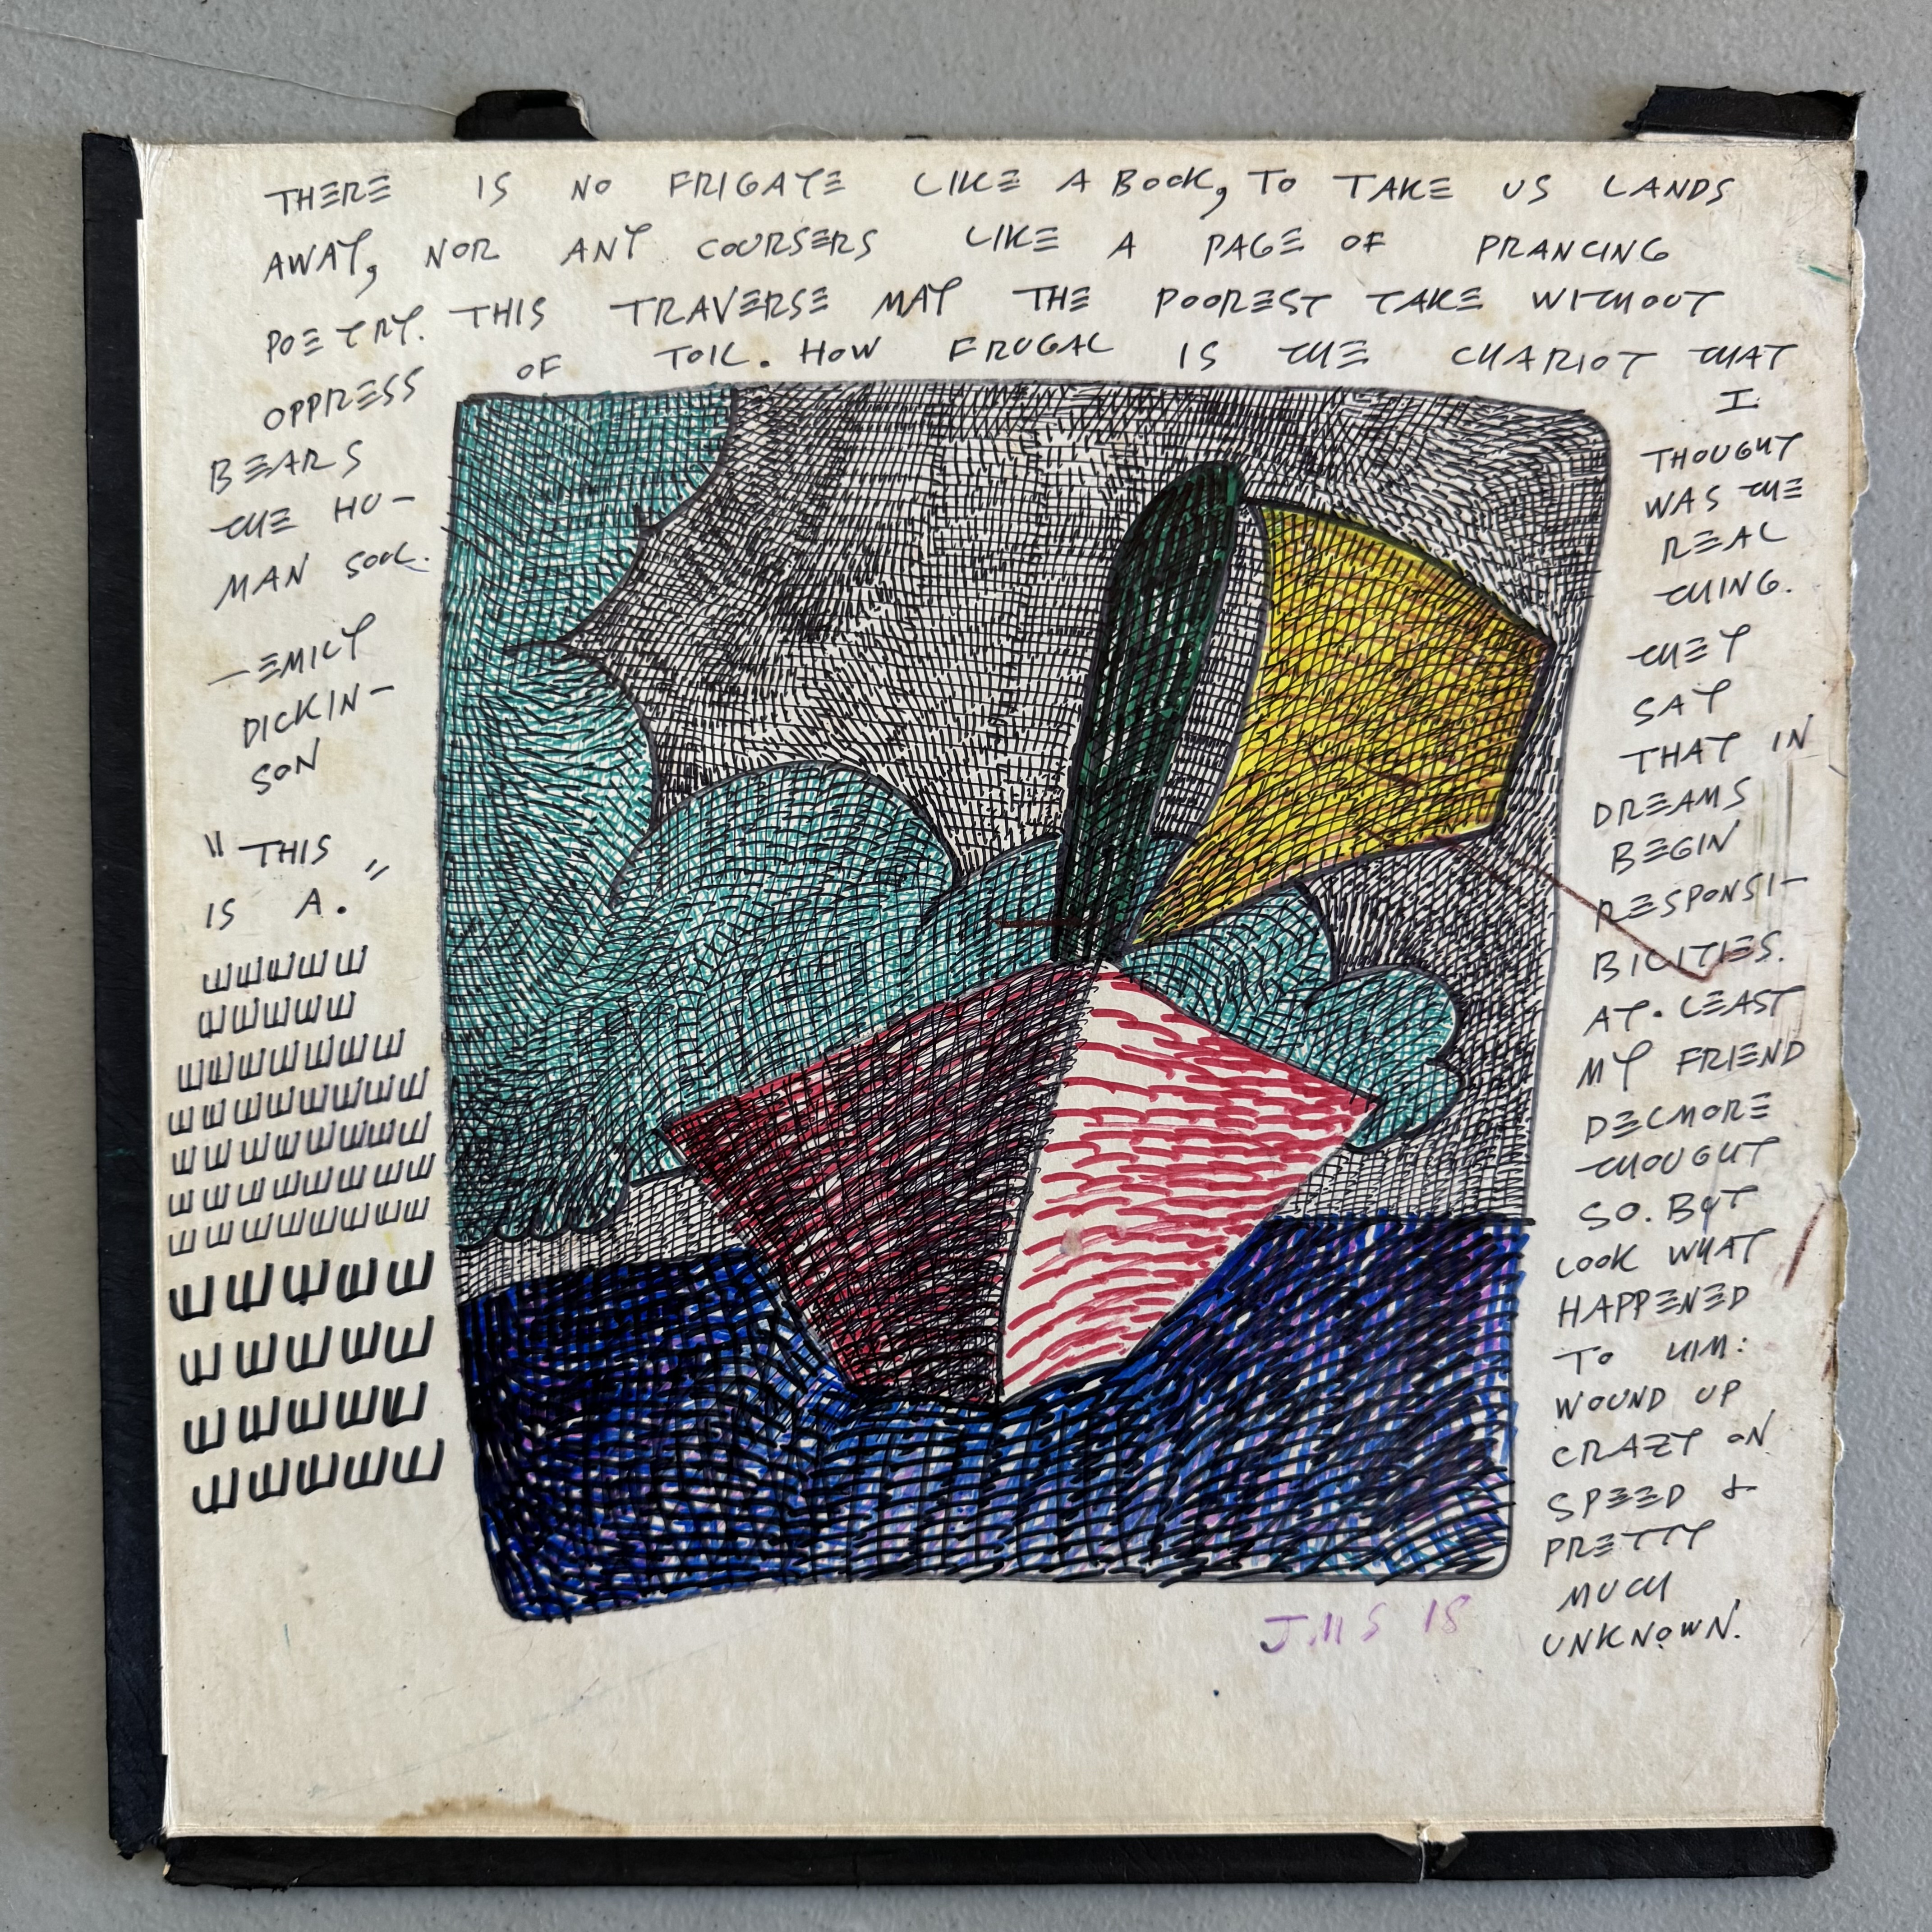 THERE IS NO FRIGATE LIKE A BOOK, TO TAKE US LANDS
AWAY, NOR ANY COURSERS LIKE A PAGE OF PRANCING
POETRY. THIS TRAVERSE MAY THE POOREST TAKE WITHOUT
OPPRESS OF TOIL. HOW FRUGAL IS THE CHARIOT THAT
BEARS
THE HU-
MAN SOUL.
—EMILY
DICKIN-
SON
"THIS
IS A."
I
THOUGHT
WAS THE
REAL
THING.
THEY
SAY
THAT IN
DREAMS
BEGIN
RESPONSI-
BILITIES.
AT. LEAST
MY FRIEND
DELMORE
THOUGHT
SO. BUT
LOOK WHAT
HAPPENED
TO HIM:
WOUND UP
CRAZY ON
SPEED &
PRETTY
MUCH
UNKNOWN.